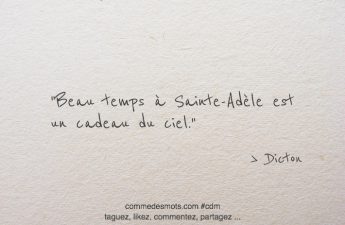 "Beau temps à Sainte-Adèle est
un cadeau du ciel."
> Dicton
commedesmots.com #cdm
taguez, likez, commentez, partagez ...